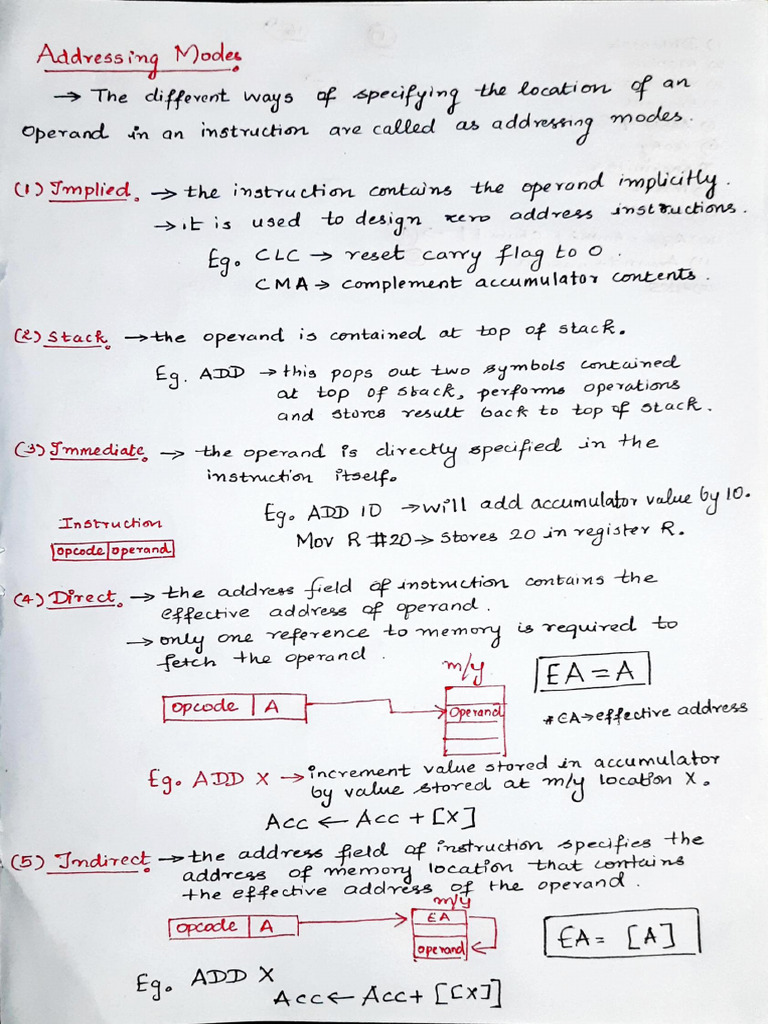 Addressing Modes.
→ The different ways of specifying the location of an
operand in an instruction are called as addressing modes.
(1) Implied. → the instruction contains the operand implicitly.
→ it is used to design zero address instructions.
Eg. CLC → reset carry flag to 0.
CMA → complement accumulator contents.
(2) Stack. → the operand is contained at top of stack.
Eg. ADD → this pops out two symbols contained
at top of stack, performs operations
and stores result back to top of stack.
(3) Immediate. → the operand is directly specified in the
instruction itself.
Eg. ADD 10 → will add accumulator value by 10.
Mov R #20 → stores 20 in register R.
Instruction
opcode operand
(4) Direct. → the address field of instruction contains the
effective address of operand.
→ only one reference to memory is required to
fetch the operand.
m/y
EA = A
opcode A
Operand
* EA → effective address
Eg. ADD X → increment value stored in accumulator
by value stored at m/y location X.
Acc ← Acc + [X]
(5) Indirect → the address field of instruction specifies the
address of memory location that contains
the effective address of the operand.
m/y
opcode A
EA
operand
EA = [A]
Eg. ADD X
Acc ← Acc + [[X]]